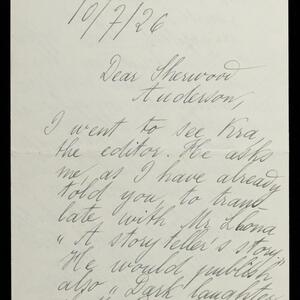 10/7/26
Dear Sherwood
Anderson,
I went to see Kra,
the editor. He asks
me, as I have already
told you, to trans
late, with Mr Llona
"A story teller's story."
He would publish
also "Dark laughter